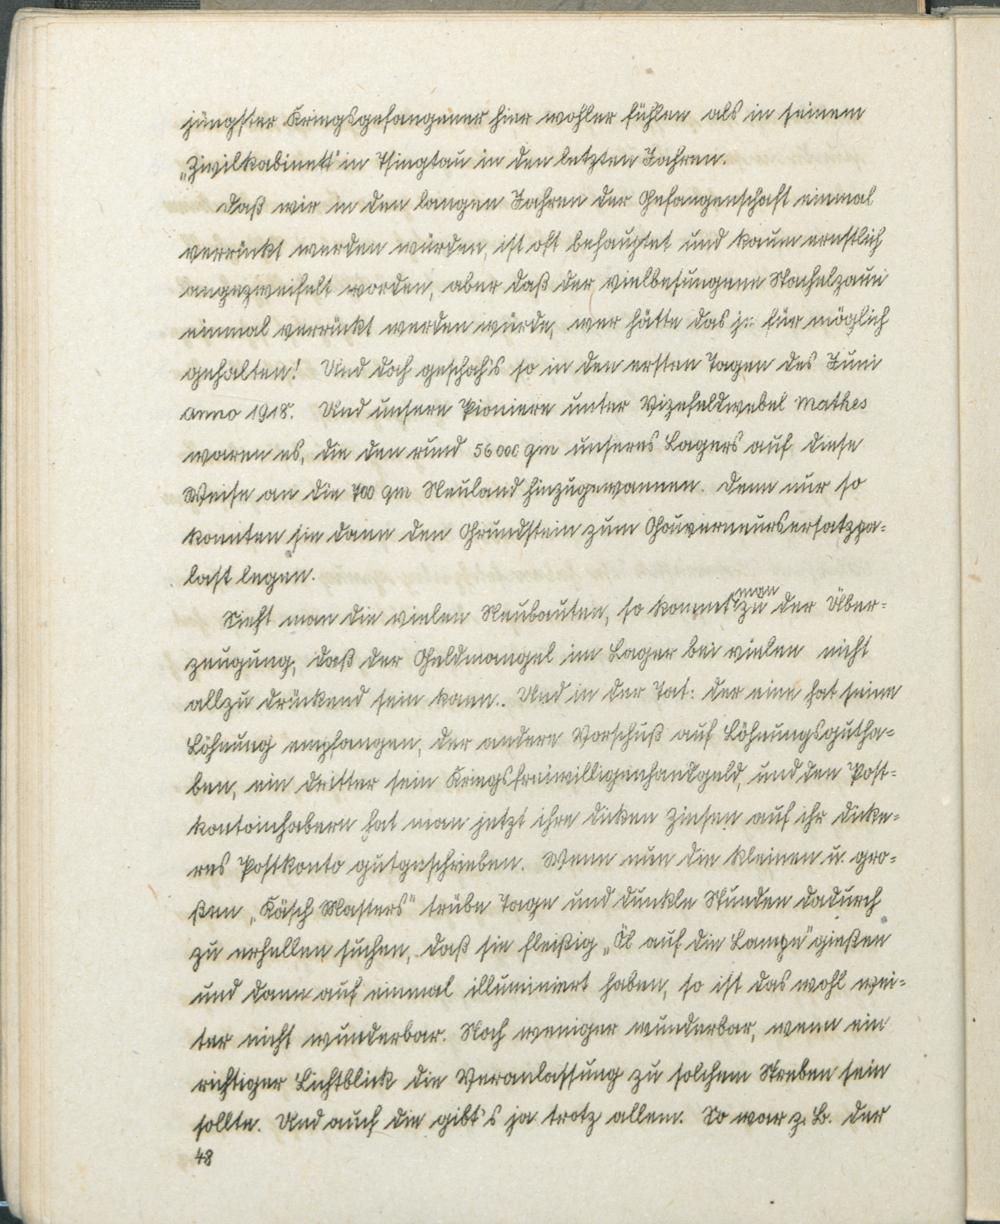 jüngster Kriegsgefangener hier wohler fühlen als in seinem
„Zivilkabinett" in Tsingtau in den letzten Jahren.
Daß wir in den langen Jahren der Gefangenschaft einmal
verrückt werden würden, ist oft behauptet und kaum ernstlich
angezweifelt worden, aber daß der vielbesungene Stachelzaun
einmal verrückt werden würde, wer hätte das je für möglich
gehalten! Und doch geschah's so in den ersten Tagen des Juni
anno 1918. Und unsere Pioniere unter Vizefeldwebel Mathes
waren es, die den rund 56000 qm unseres Lagers auf diese
Weise an die 700 qm Neuland hinzugewannen. Denn nur so
konnten sie dann den Grundstein zum Gouverneursersatzpa-
last legen.
Sieht man die vielen Neubauten, so kommt man zu der Über-
zeugung, daß der Geldmangel im Lager bei vielen nicht
allzu drückend sein kann. Und in der Tat: der eine hat seine
Löhnung empfangen, der andere Vorschuß auf Löhnungsgutha-
ben, ein dritter sein Kriegsfreiwilligenhandgeld, und den Post-
kontoinhabern hat man jetzt ihre dicken Zinsen auf ihr dicke-
res Postkonto gutgeschrieben. Wenn nun die kleinen u. gro-
ßen „Käsch Masters" trübe Tage und dunkle Stunden dadurch
zu erhellen suchen, daß sie fleißig „Öl auf die Lampe" gießen
und dann auf einmal illuminiert haben, so ist das wohl wei-
ter nicht wunderbar. Noch weniger wunderbar, wenn ein
richtiger Lichtblick die Veranlassung zu solchem Streben sein
sollte. Und auch die gibt's ja trotz allem. So war z. B. der
48